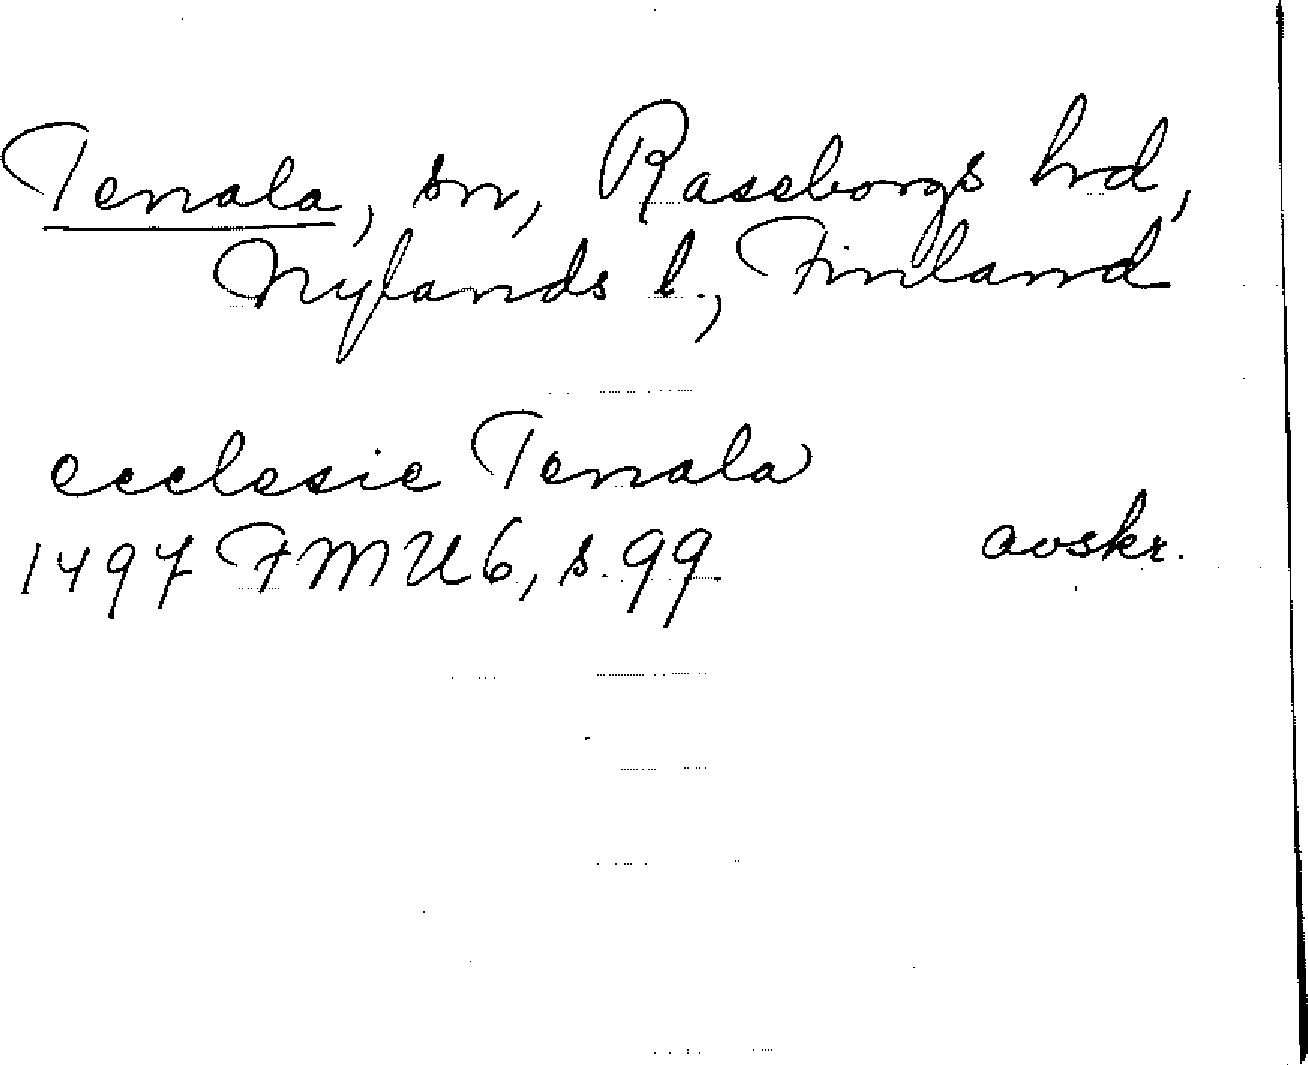 Tenala, sn, Raseborgs hrd,
Nylands l., Finland
ecclesie Tenala
1497 FMU 6, s. 99. avskr.